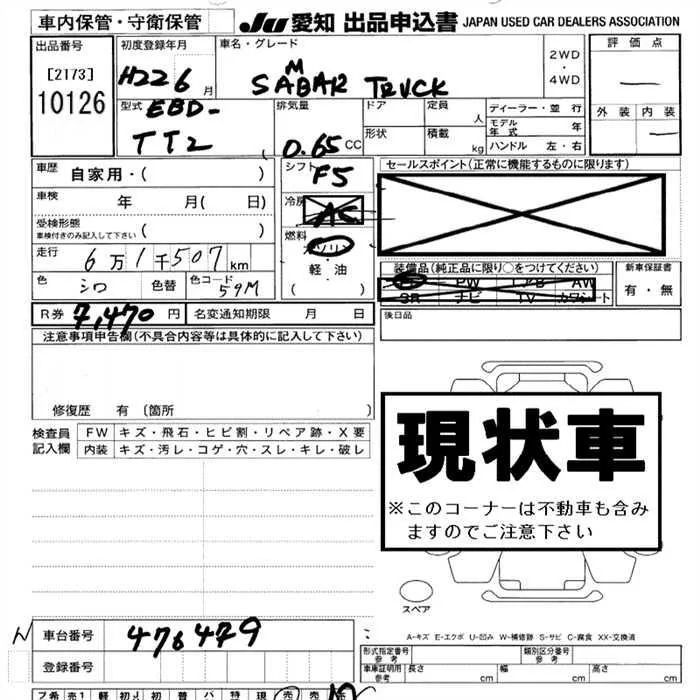 車内保管・守衛保管
JU 愛知 出品申込書 JAPAN USED CAR DEALERS ASSOCIATION
出品番号
[2173]
10126
初度登録年月
H22 6 月
車名・グレード
SAMBAR TRUCK
2WD
・
4WD
評価点
—
外装 内装
—
型式 EBD-
TT2
排気量
0.65 CC
ドア
形状
定員 人
積載 kg
ディーラー・並行
モデル年式 年
ハンドル 左・右
車歴 自家用・( )
車検 年 月( 日)
受検形態
車検付きのみ記入して下さい ( )
走行 6万1千507km
色 シロ 色替 色コード 59M
シフト
F5
冷房
AC
燃料
ガソリン
・
軽・油
( )
セールスポイント(正常に機能するものに限ります)
装備品(純正品に限り○をつけてください)
PS PW エアB AW
SR ナビ TV カワシート
新車保証書
有・無
R券 7,470 円 名変通知期限 月 日
後日品
注意事項申告欄(不具合内容等は具体的に記入して下さい)
修復歴 有(箇所 )
検査員記入欄
FW キズ・飛石・ヒビ割・リペア跡・X要
内装 キズ・汚レ・コゲ・穴・スレ・キレ・破レ
現状車
※このコーナーは不動車も含み
ますのでご注意下さい
スペア
A-キズ E-エクボ U-凹み W-補修跡 S-サビ C-腐食 XX-交換済
車台番号 476479
登録番号
型式指定番号
参考
類別区分番号
参考
車庫証明用
参考
長さ 幅 高さ